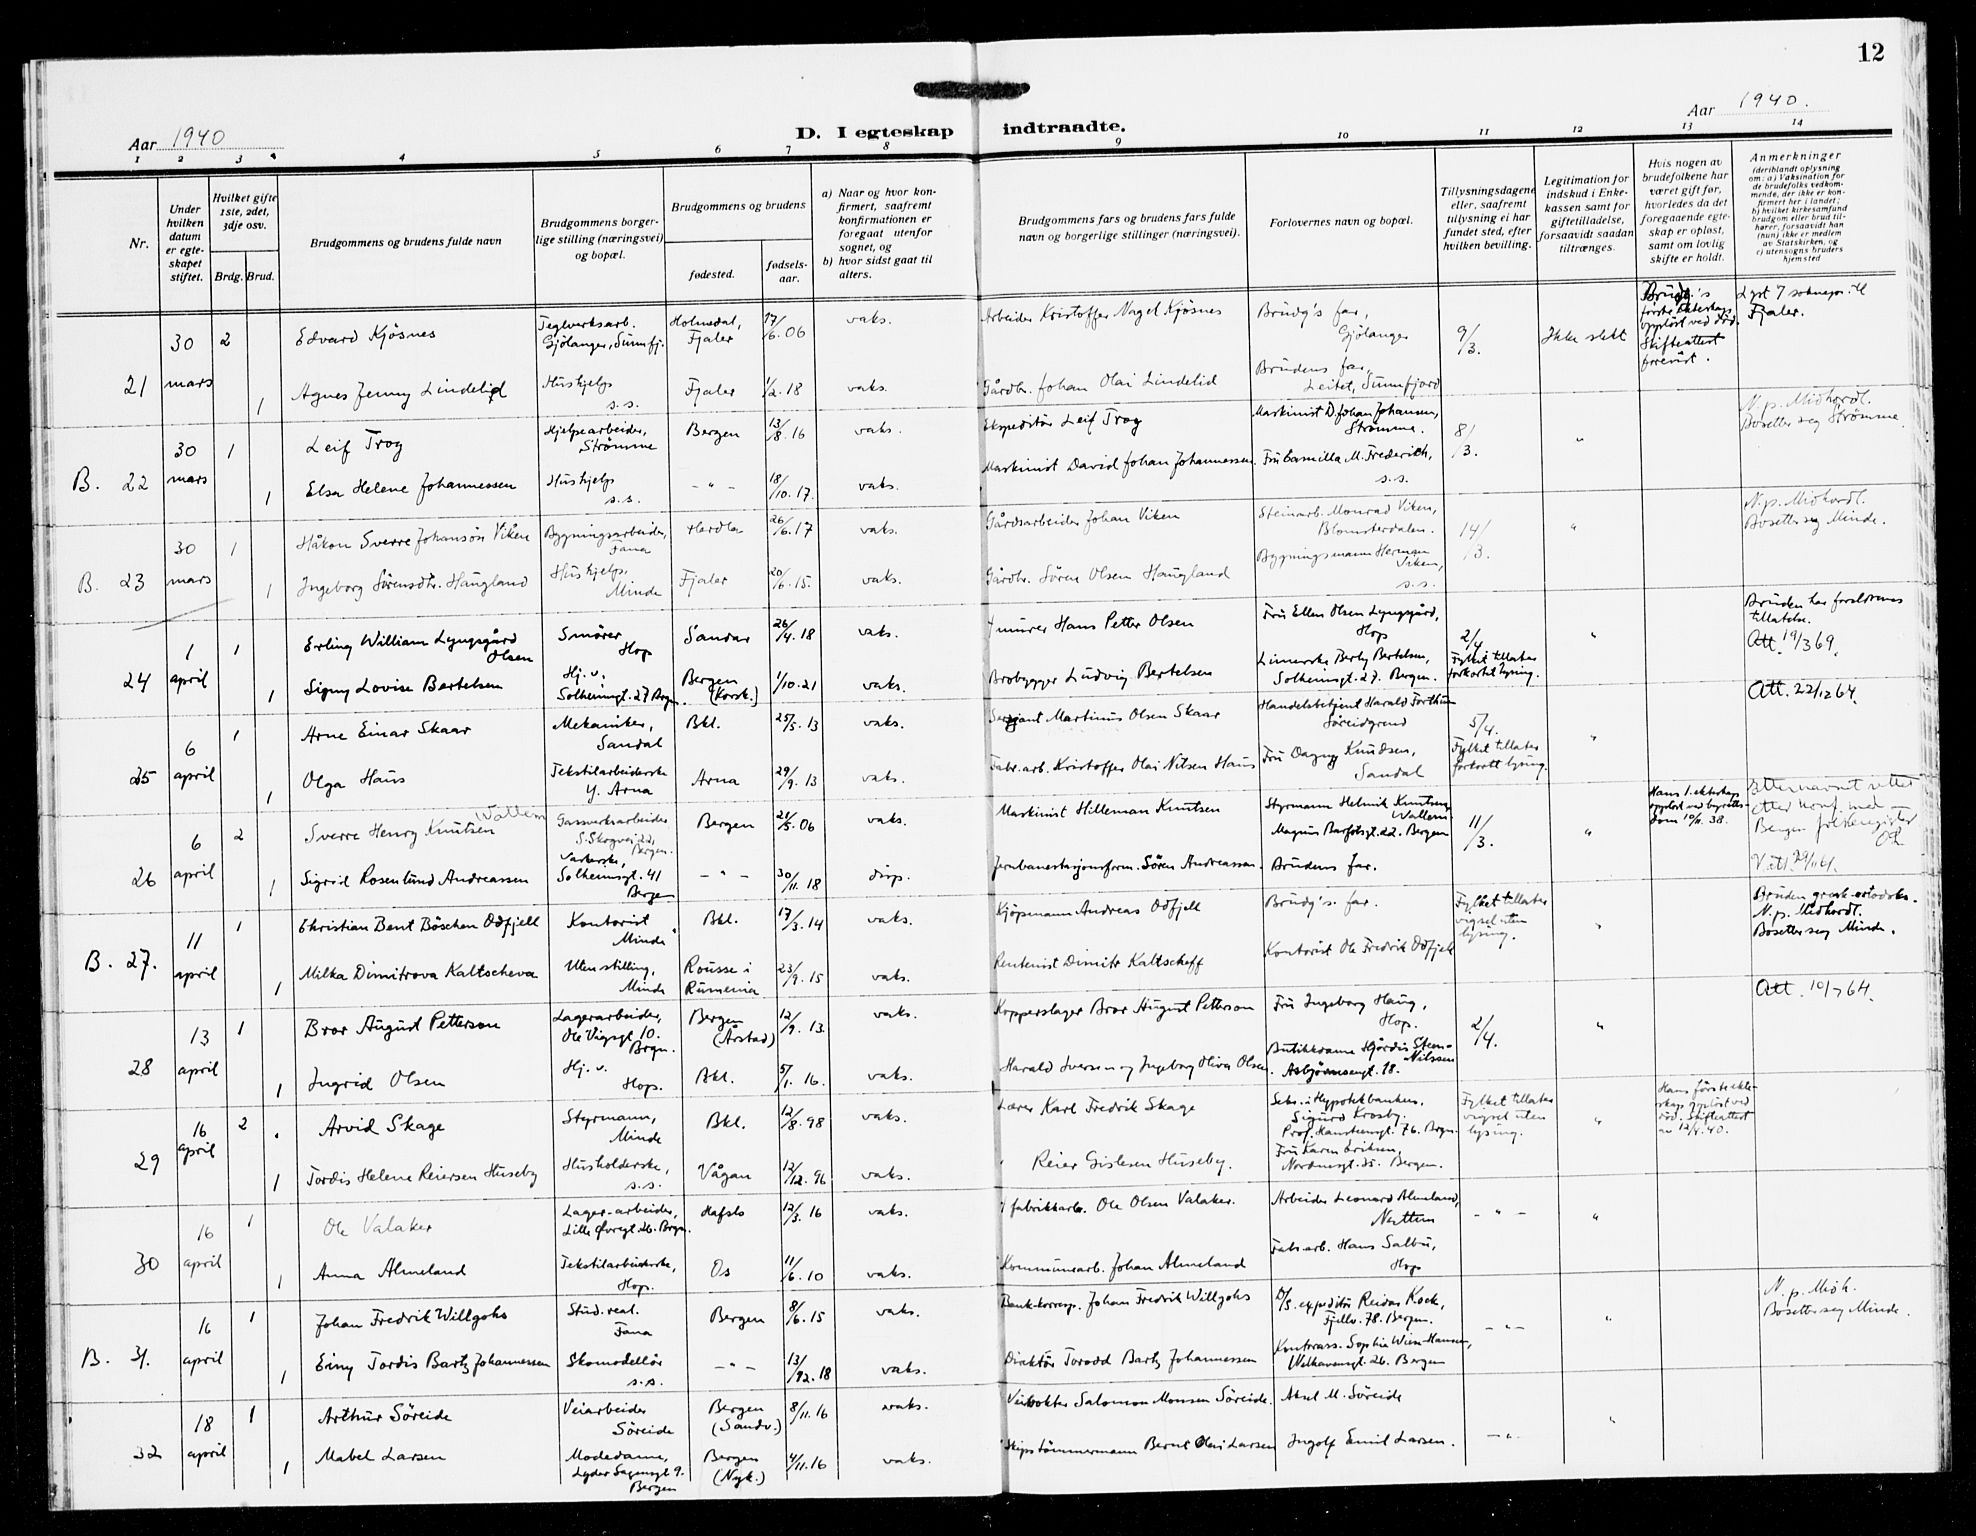 12
Aar 1940
D. I egteskap indtraadte.
Aar 1940.
1 2 3 4 5 6 7 8 9 10 11 12 13 14
Nr.
Under hvilken datum er egteskapet stiftet.
Hvilket gifte 1ste, 2det, 3dje osv.
Brdg. Brud.
Brudgommens og brudens fulde navn
Brudgommens borgerlige stilling (næringsvei) og bopæl.
Brudgommens og brudens
fødested.
fødselsaar.
a) Naar og hvor konfirmert, saafremt konfirmationen er foregaat utenfor sognet, og
b) hvor sidst gaat til alters.
Brudgommens fars og brudens fars fulde navn og borgerlige stillinger (næringsvei).
Forlovernes navn og bopæl.
Tillysningsdagene eller, saafremt tillysning ei har fundet sted, efter hvilken bevilling.
Legitimation for indskud i Enkekassen samt for giftetilladelse, forsaavidt saadan tiltrænges.
Hvis nogen av brudefolkene har været gift før, hvorledes da det foregaaende egteskap er opløst, samt om lovlig skifte er holdt.
Anmerkninger
(deriblandt oplysning om: a) Vaksination for de brudefolks vedkommende, der ikke er konfirmert her i landet; b) hvilket kirkesamfund brudgom eller brud tilhører, forsaavidt han (hun) ikke er medlem av Statskirken, og c) utensogns bruders hjemsted
21 30 mars 2 Edvard Kjøsnes Teglverksarb. Gjølanger, Sunnfj. Holmedal, Fjaler 17/6.06 vaks. Arbeider Kristoffer Nagel Kjøsnes Brudg's far, Gjølanger 9/3. Ikke slekt Brudg.'s første ekteskap oppløst ved død. Skifteattest forevist. Lyst 7 sokneprest til Fjaler.
1 Agnes Jenny Lindelid Hushjelp s.s. Fjaler 1/2.18 vaks. Gårdbr. Johan Olai Lindelid Brudens far, Leitet, Sunnfjord
B. 22 30 mars 1 Leif Trog Hjelpearbeider, Strømme Bergen 13/8.16 vaks. Ekspeditør Leif Trog Maskinist D. Johan Johansen, Strømme. 8/3. " N.p. Midhordl. Bosetter seg Strømme.
1 Elsa Helene Johannessen Hushjelp s.s. - " - 18/10.17. vaks. Maskinist David Johan Johannessen. Fru Camilla M. Frederich, s.s.
B. 23 30 mars 1 Håkon Sverre Johansøn Viken Bygningsarbeider, Fana Herdla 26/6.17 vaks. Gårdsarbeider Johan Viken Steinarb. Monrad Viken, Blomsterdalen. 14/3. " N.p. Midhordl. Bosetter seg Minde.
1 Ingeborg Sørensdtr. Haugland Hushjelp, Minde Fjaler 20/6.15. vaks. Gårdbr. Søren Olsen Haugland Bygningsmann Herman Viken, s.s.
24 1 april 1 Erling William Lyngsgård Olsen Smører Hop Sandar 26/4.18 vaks. murer Hans Petter Olsen Fru Ellen Olsen Lynggård, Hop 2/4 Fylket tillater forkortet lysning. " Bruden har foreldrenes tillatelse. Att. 19/3 69.
1 Signy Lovise Bertelsen Hj. v. Solheimsgt. 27 Brgn. Bergen (Korsk.) 1/10.21 vaks. Brobygger Ludvig Bertelsen Limerske Berly Bertelsen, Solheimsgt. 27. Bergen.
25 6 april 1 Arne Einar Skaar Mekaniker, Sandal Bkl. 25/5.13 vaks. Sersjant Martinus Olsen Skaar Handelsbetjent Harald Forthun Søreidgrend 5/4. Fylket tillater forkortt lysing. " Att. 22/12 64.
1 Olga Haus Tekstilarbeiderske Y. Arna Arna 29/9.13 vaks. Fabr.arb. Kristoffer Olai Nilsen Haus Fru Dagny Knudsen, Sandal
26 6 april 2 Sverre Henry Knutsen Wallem Gassverksarbeider S. Skogvei 22, Bergen. Bergen 21/5.06 vaks. Maskinist Hilleman Knutsen Styrmann Helmik Knutsen Wallem Magnus Barfotsgt. 22. Bergen 11/3. " Hans 1. ekteskap oppløst ved byrettsdom 10/11.38. Etternavnet rettet etter konf. med Bergen folkeregister
1 Sigrid Rosenlund Andreassen Solheimsgt. 41 Bergen - " - 30/11.18 disp. Jernbanestasjonsform. Søren Andreassen Brudens far.
B. 27. 11 april 1 Christian Bent Böschen Odfjell Kontorist Minde Bkl. 17/3.14 vaks. Kjøpmann Andreas Odfjell Brudg's. far. Fylket tillater vigsel uten lysing. " Bruden gresk-ortodoks. N.p. Midhordl. Bosetter seg Minde.
1 Milka Dimitrova Kaltscheva Uten stilling, Minde Rousse i Rumenia 23/9.15 vaks. Rentenist Dimitr Kaltscheff Kontorist Ole Fredrik Odfjell
28 13 april 1 Bror August Petterson Lagerarbeider, Ole Vigsgt 10. Brgn. Bergen (Årstad) 12/9.13. vaks. Kopperslager Bror August Petterson Fru Ingeborg Haug, Hop. 2/4. " Att. 10/7 64.
1 Ingrid Olsen Hj. v. Hop. Bkl. 5/1.16. vaks. Harald Iversen og Ingeborg Oliva Olsen. Butikkdame Hjørdis Steen-Nilssen Asbjørnsensgt. 18.
29 16 april 2 Arvid Skage Styrmann, Minde Bkl. 12/8.98 vaks. Lærer Karl Fredrik Skage Sekr. i Hypotekbanken, Sigurd Krosby. Prof. Hansteensgt. 76. Brgn. Fylket tillater vigsel uten lysing. " Hans første ekteskap oppløst ved død. Skifteattest av 12/4.40.
1 Tordis Helene Reiersen Huseby Husholderske, s.s. Vågan 12/12.96 vaks. Reier Gislesen Huseby. Fru Karen Eriksen, Nordnesgt. 35. Bergen.
30 16 april 1 Ole Valaker Lager-arbeider, Lille Øvregt 26. Brgn. Hafslo 12/3.16 vaks. fabrikkarb. Ole Olsen Valaker. Arbeider Leonard Almeland, Nesttun - " - "
1 Anna Almeland Tekstilarbeiderske, Hop. Os 11/6.10 vaks. Kommunearb. Johan Almeland Fabr.arb. Hans Salbu, Hop
B. 31. 16 april 1 Johan Fredrik Willgohs Stud. real. Fana Bergen 8/6.15 vaks. Bank-korresp. Johan Fredrik Willgohs D/S. expeditør Reidar Kock, Fjellv. 78. Bergen. - " - " N.p. Midh. Bosetter seg Minde.
1 Einy Tordis Bartz Johannessen Skomodellør s.s. - " - 13/12.18 vaks. Direktør Torodd Bartz Johannessen Kontorass. Sophie Wiese Hansen, Welhavensgt. 26. Bergen
32 18 april 1 Arthur Søreide Veiarbeider Søreide Bergen (Sandv.) 8/11.16 vaks. Veivokter Salomon Monsen Søreide. Aksel M. Søreide - " - "
1 Mabel Larsen Modedame, Lyder Sagensgt 9. Bergen Bergen (Nyk.) 4/11.16 vaks. Skipstømmermann Bernt Olai Larsen Ingolf Emil Larsen.